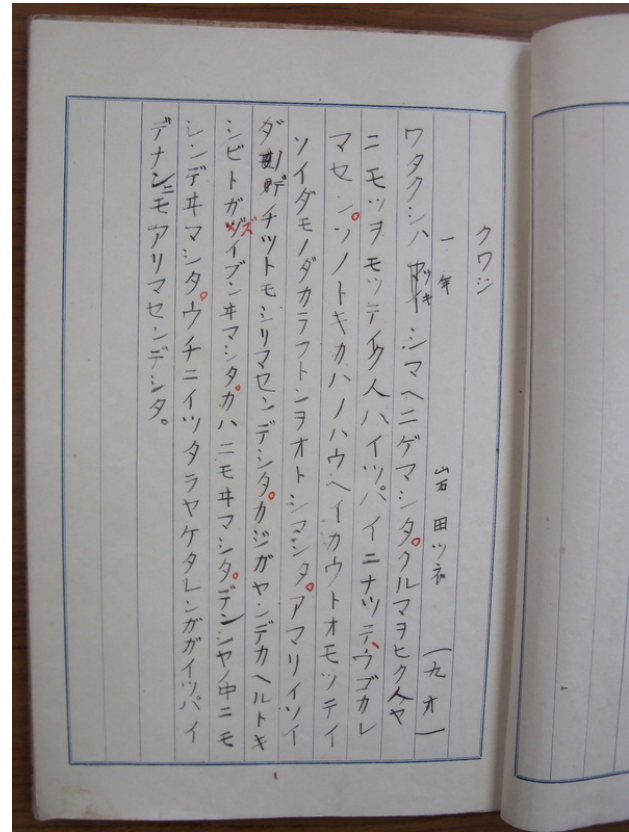 クワジ
一年 岩田ツネ (九才)
ワタクシハ ツキシマヘニゲマシタ。クルマヲヒク人ヤ
ニモツヲモツテイク人ハイツパイニナツテ、ウゴカレ
マセン。ソノトキカハノハウヘイカウトオモツテイ
ソイダモノダカラフトンヲオトシマシタ。アマリイソイ
ダ チツトモシリマセンデシタ。カジガヤンデカヘルトキ
シビトガズイブンヰマシタ。カハニモヰマシタ。デンシヤノ中ニモ
シンデヰマシタ。ウチニイツタラヤケタレンガガイツパイ
デナンニモアリマセンデシタ。